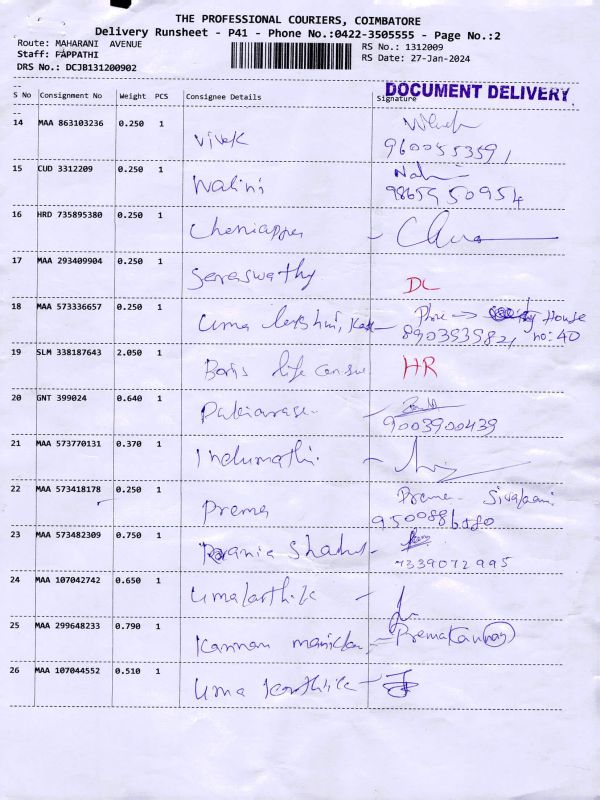 THE PROFESSIONAL COURIERS, COIMBATORE
Delivery Runsheet - P41 - Phone No.:0422-3505555 - Page No.:2
Route: MAHARANI AVENUE
Staff: PAPPATHI
DRS No.: DCJB131200902
RS No.: 1312009
RS Date: 27-Jan-2024
DOCUMENT DELIVERY
S No Consignment No Weight PCS Consignee Details Signature
14 MAA 863103236 0.250 1 Vivek
9600553591
15 CUD 3312209 0.250 1 Nalini
9865950954
16 HRD 735895380 0.250 1
17 MAA 293409904 0.250 1 Saraswathy DL
18 MAA 573336657 0.250 1 Uma House
8903535821, no: 40
19 SLM 338187643 2.050 1 life HR
20 GNT 399024 0.640 1
9003900439
21 MAA 573770131 0.370 1 Indumathi
22 MAA 573418178 0.250 1 Prema Prema
9500886580
23 MAA 573482309 0.750 1
7339072995
24 MAA 107042742 0.650 1
25 MAA 299648233 0.790 1 Kannan Premakannan
26 MAA 107044552 0.510 1 Uma